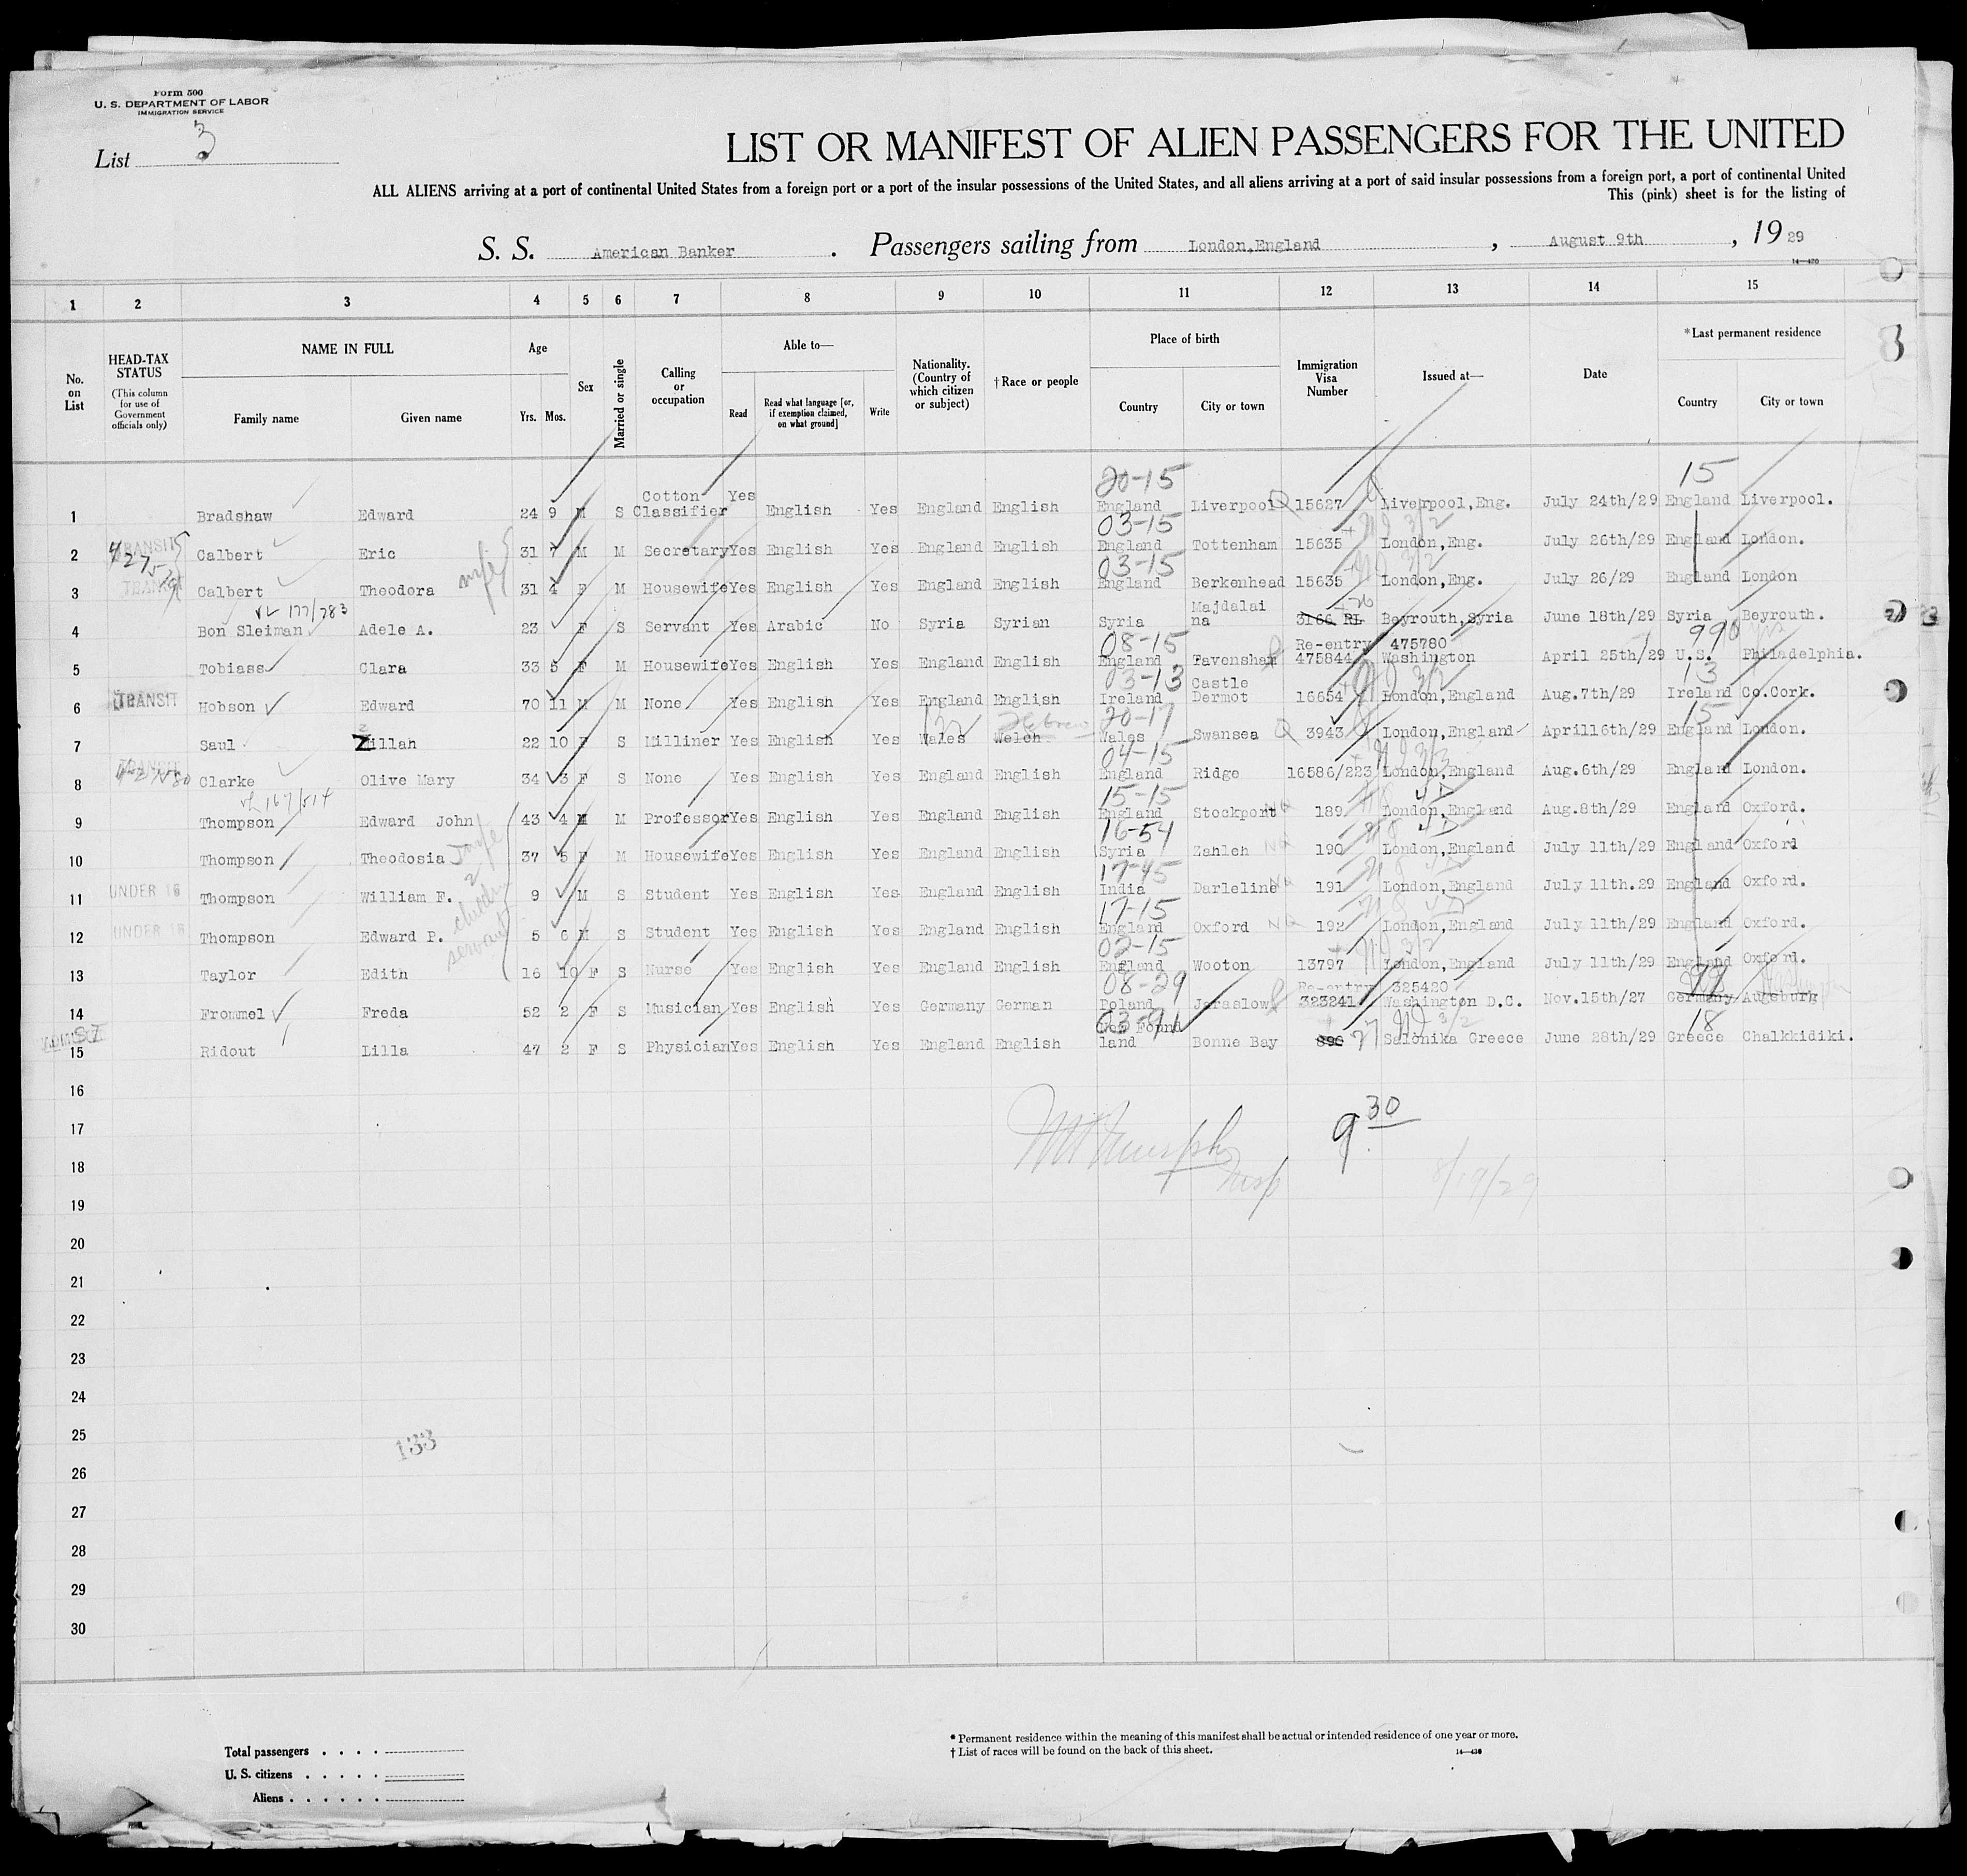 Form 500
U. S. DEPARTMENT OF LABOR
IMMIGRATION SERVICE
List 3
LIST OR MANIFEST OF ALIEN PASSENGERS FOR THE UNITED
ALL ALIENS arriving at a port of continental United States from a foreign port or a port of the insular possessions of the United States, and all aliens arriving at a port of said insular possessions from a foreign port, a port of continental United
This (pink) sheet is for the listing of
S. S. American Banker. Passengers sailing from London, England, August 9th, 1929
14—430
1 2 3 4 5 6 7 8 9 10 11 12 13 14 15
No. on List
HEAD-TAX STATUS (This column for use of Government officials only)
NAME IN FULL Family name Given name
Age Yrs. Mos.
Sex
Married or single
Calling or occupation
Able to— Read Read what language [or, if exemption claimed, on what ground] Write
Nationality. (Country of which citizen or subject)
†Race or people
Place of birth Country City or town
Immigration Visa Number
Issued at—
Date
*Last permanent residence Country City or town
20-15 15
1 Bradshaw Edward 24 9 M S Cotton Classifier Yes English Yes England English England Liverpool Q 15627 Liverpool, Eng. July 24th/29 England Liverpool.
03-15
2 TRANSIT Calbert Eric 31 7 M M Secretary Yes English Yes England English England Tottenham 15635 London, Eng. July 26th/29 England London.
03-15
3 TRANSIT Calbert Theodora wife 31 4 F M Housewife Yes English Yes England English England Berkenhead 15635 London, Eng. July 26/29 England London
177/783
4 Bon Sleiman Adele A. 23 F S Servant Yes Arabic No Syria Syrian Syria Majdalaina 3166 RL Beyrouth, Syria June 18th/29 Syria Beyrouth.
08-15 Re-entry 475780 990
5 Tobiass Clara 33 5 F M Housewife Yes English Yes England English England Favensham 475844 Washington April 25th/29 U.S. Philadelphia.
03-13 13
6 TRANSIT Hobson Edward 70 11 M M None Yes English Yes England English Ireland Castle Dermot 16654 London, England Aug. 7th/29 Ireland Co.Cork.
Hebrew 20-17 15
7 Saul Zillah 22 10 F S Milliner Yes English Yes Wales Welch Wales Swansea Q 3943 London, England April16th/29 England London.
04-15
8 TRANSIT Clarke Olive Mary 34 3 F S None Yes English Yes England English England Ridge 16586/223 London, England Aug. 6th/29 England London.
167/514 15-15
9 Thompson Edward John 43 4 M M Professor Yes English Yes England English England Stockport NQ 189 London, England Aug. 8th/29 England Oxford.
16-54
10 Thompson Theodosia wife 37 5 F M Housewife Yes English Yes England English Syria Zahleh NQ 190 London, England July 11th/29 England Oxford
17-45
11 UNDER 16 Thompson William F. 9 M S Student Yes English Yes England English India Darleline NQ 191 London, England July 11th.29 England Oxford.
17-15
12 UNDER 16 Thompson Edward P. 5 6 M S Student Yes English Yes England English England Oxford NQ 192 London, England July 11th/29 England Oxford.
servant 02-15
13 Taylor Edith 16 10 F S Nurse Yes English Yes England English England Wooton 13797 London, England July 11th/29 England Oxford.
08-29 Re-entry 325420 99
14 Frommel Freda 52 2 F S Musician Yes English Yes Germany German Poland Jaraslow 323241 Washington D.C. Nov.15th/27 Germany Augsburg
03-91 18
15 Ridout Lilla 47 2 F S Physician Yes English Yes England English New Foundland Bonne Bay 890 27 Salonika Greece June 28th/29 Greece Chalkkidiki.
16
17 9 30
18 8/19/29
19
20
21
22
23
24
25 133
26
27
28
29
30
Total passengers
U. S. citizens
Aliens
* Permanent residence within the meaning of this manifest shall be actual or intended residence of one year or more.
† List of races will be found on the back of this sheet.
14—430